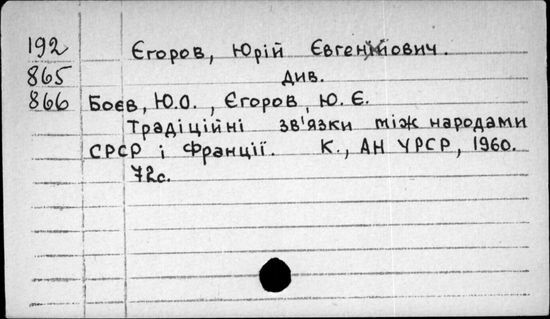 192 Єгоров, Юрій Євгенійович.
865 див.
866 Боєв, Ю.О., Єгоров, Ю.Є.
Традіційні зв'язки між народами
СРСР і Франції. К., АН УРСР, 1960.
72с.